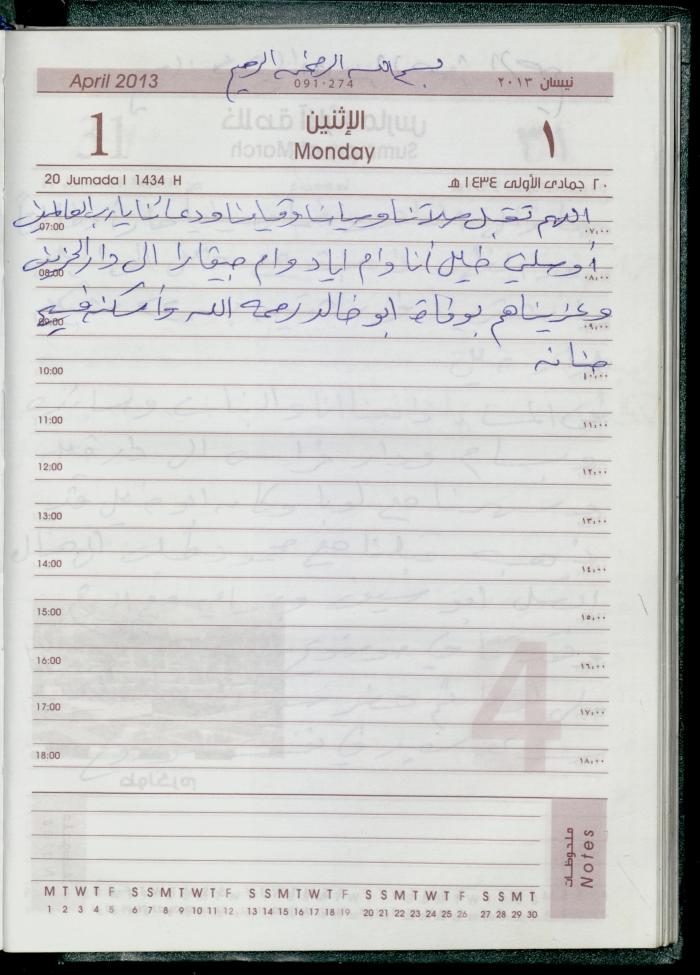 بسم الله الرحمن الرحيم
April 2013
091-274
نيسان ٢٠١٣
1
الإثنين
Monday
١
20 Jumada I 1434 H
٢٠ جمادى الأولى ١٤٣٤ هـ
اللهم تقبل صلاتنا وصيامنا وقيامنا ودعائنا يا رب العالمين
07:00
٠٧,٠٠
أوصلني خليل أنا وام اياد وام صقار الى دار الحزين
08:00
٠٨,٠٠
وعزيناهم بوفاة ابو خالد رحمه الله وأسكنه فسيح
09:00
٠٩,٠٠
جنانه
10:00
١٠,٠٠
11:00
١١,٠٠
12:00
١٢,٠٠
13:00
١٣,٠٠
14:00
١٤,٠٠
15:00
١٥,٠٠
16:00
١٦,٠٠
17:00
١٧,٠٠
18:00
١٨,٠٠
4
ملحوظات
Notes
M T W T F S S M T W T F S S M T W T F S S M T W T F S S M T
1 2 3 4 5 6 7 8 9 10 11 12 13 14 15 16 17 18 19 20 21 22 23 24 25 26 27 28 29 30